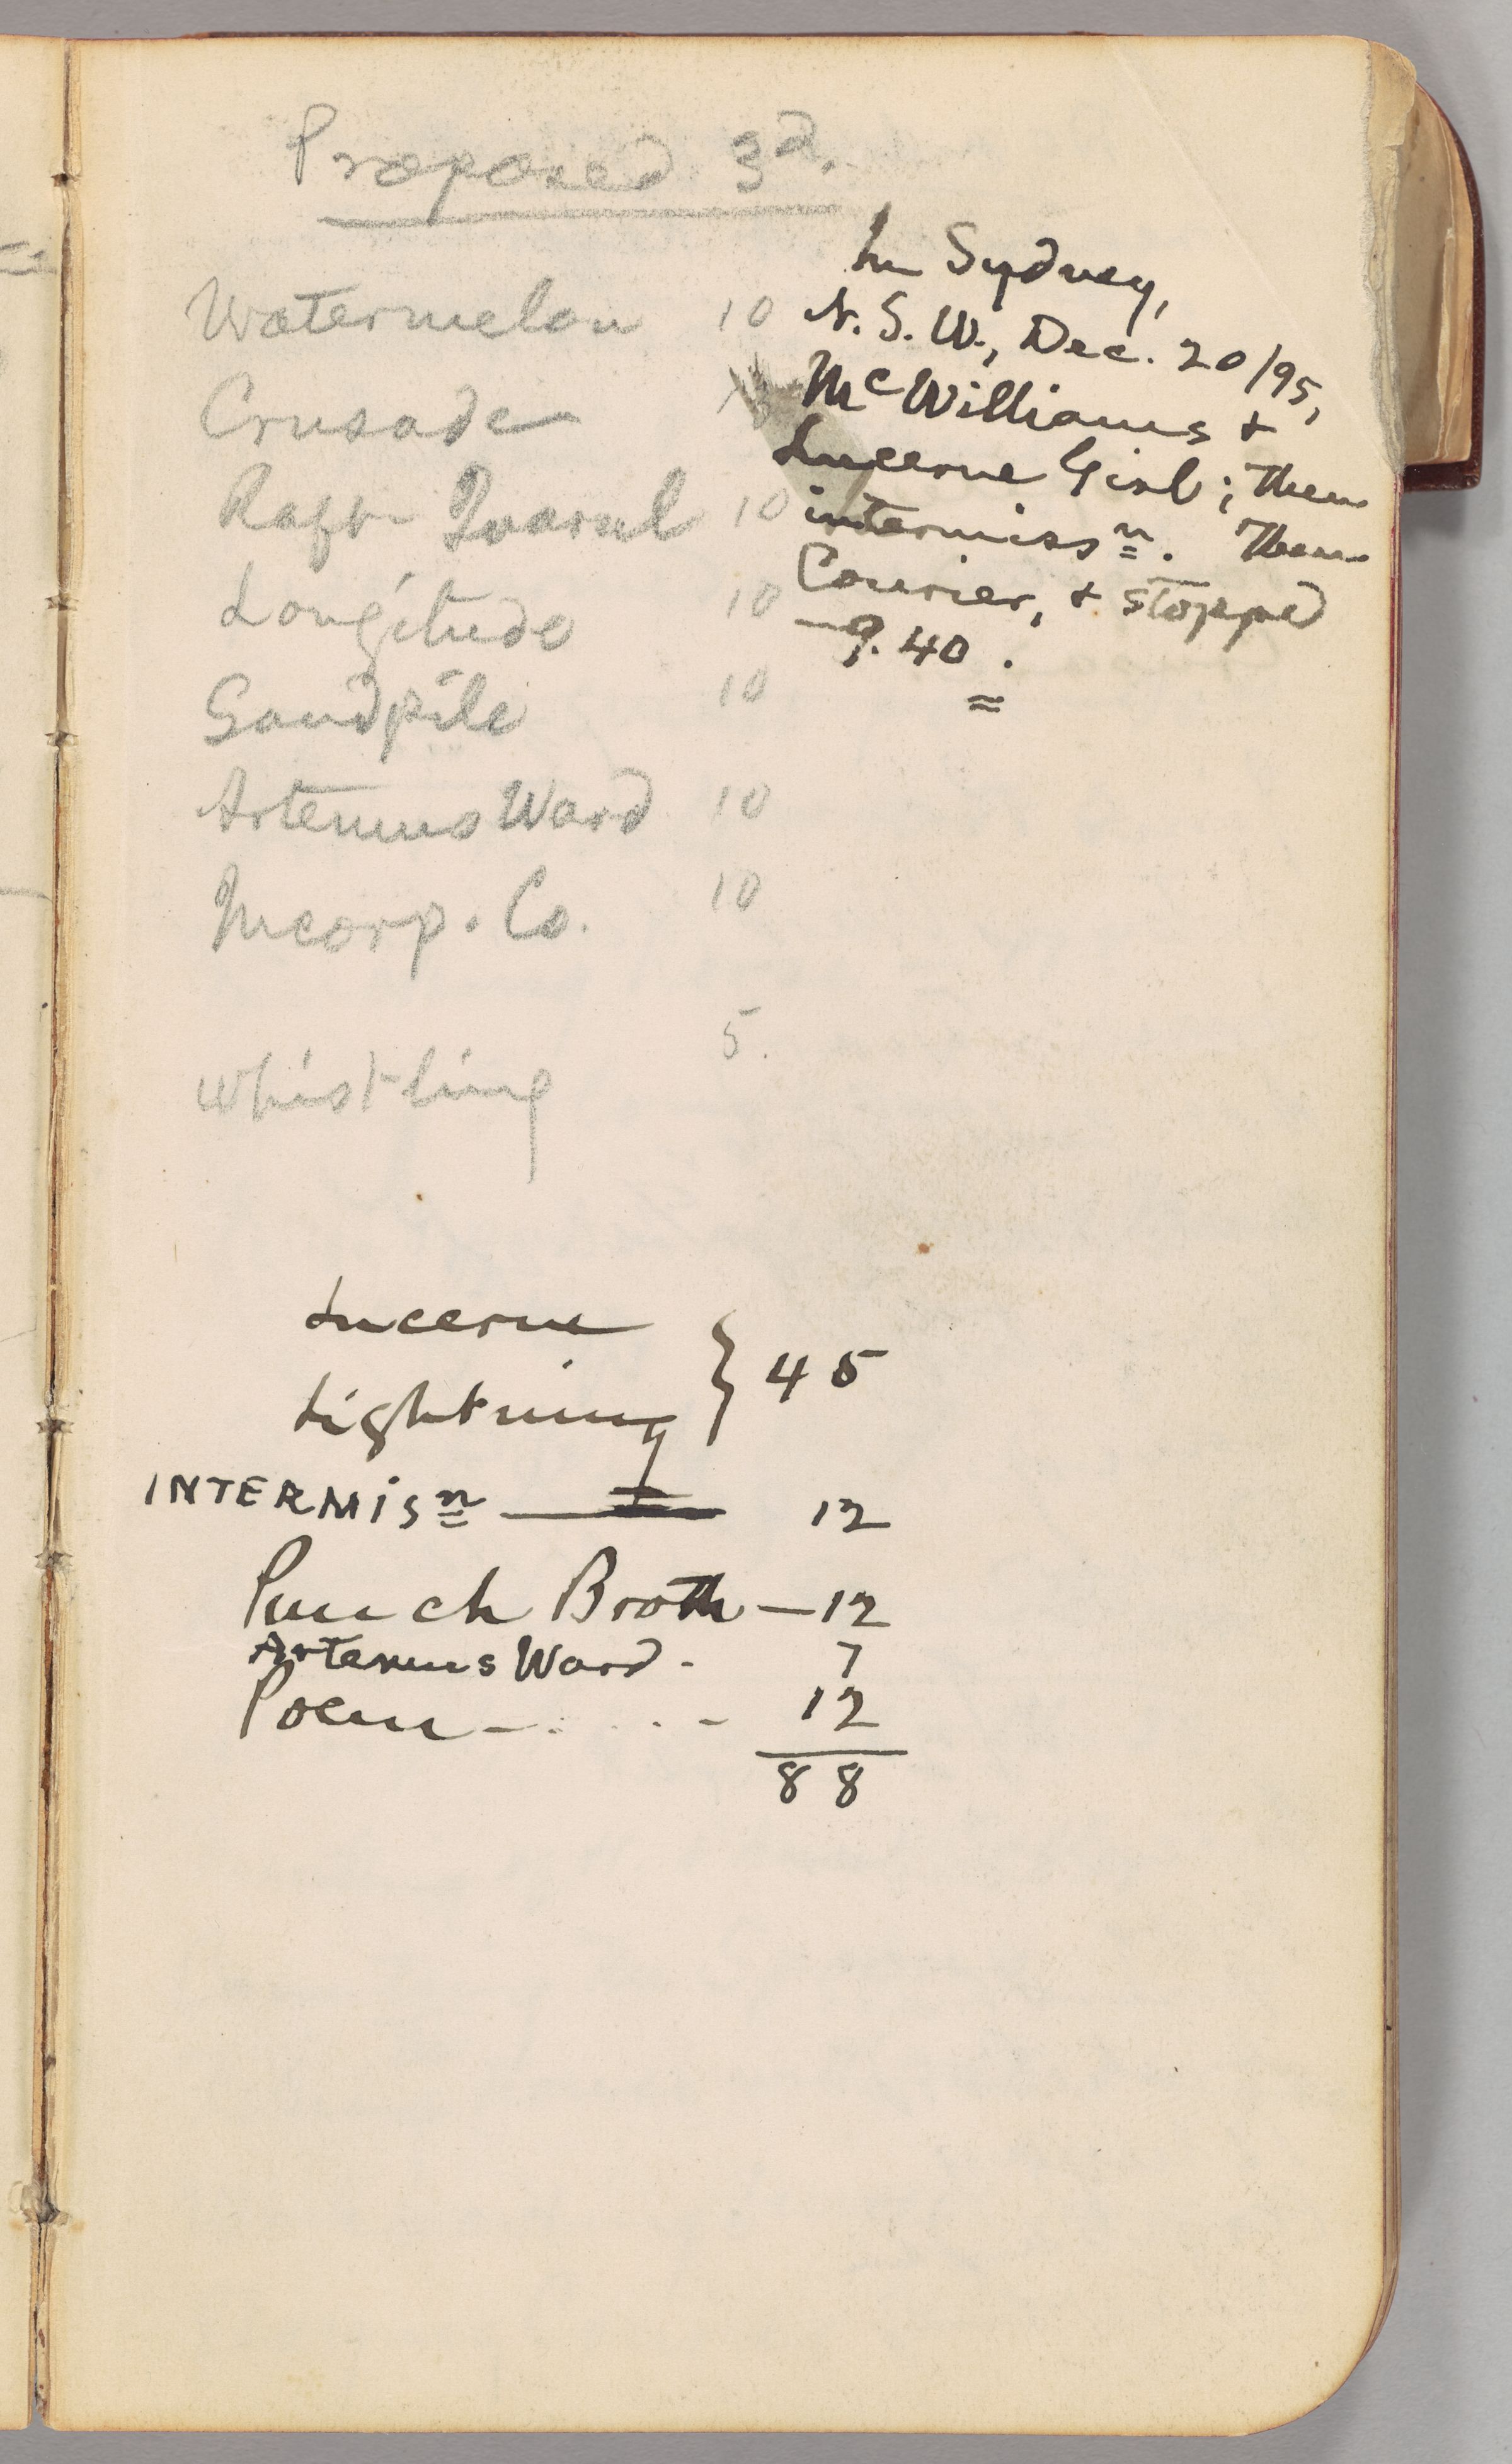 Proposed 3d.
Watermelon 10
Crusade
Raft Quarrel 10
Longitude 10
Sandpile 10
Artemus Ward 10
Incorp. Co. 10
5.
Whistling
In Sydney,
N. S. W., Dec. 20/95,
McWilliams &
Lucerne Girl; then
intermissn. Then
Courier, & stopped
—9.40.
Lucerne
Lightning } 45
INTERMISn — 12
Punch Broth — 12
Artemus Ward - 7
Poem - . . . . - 12
88